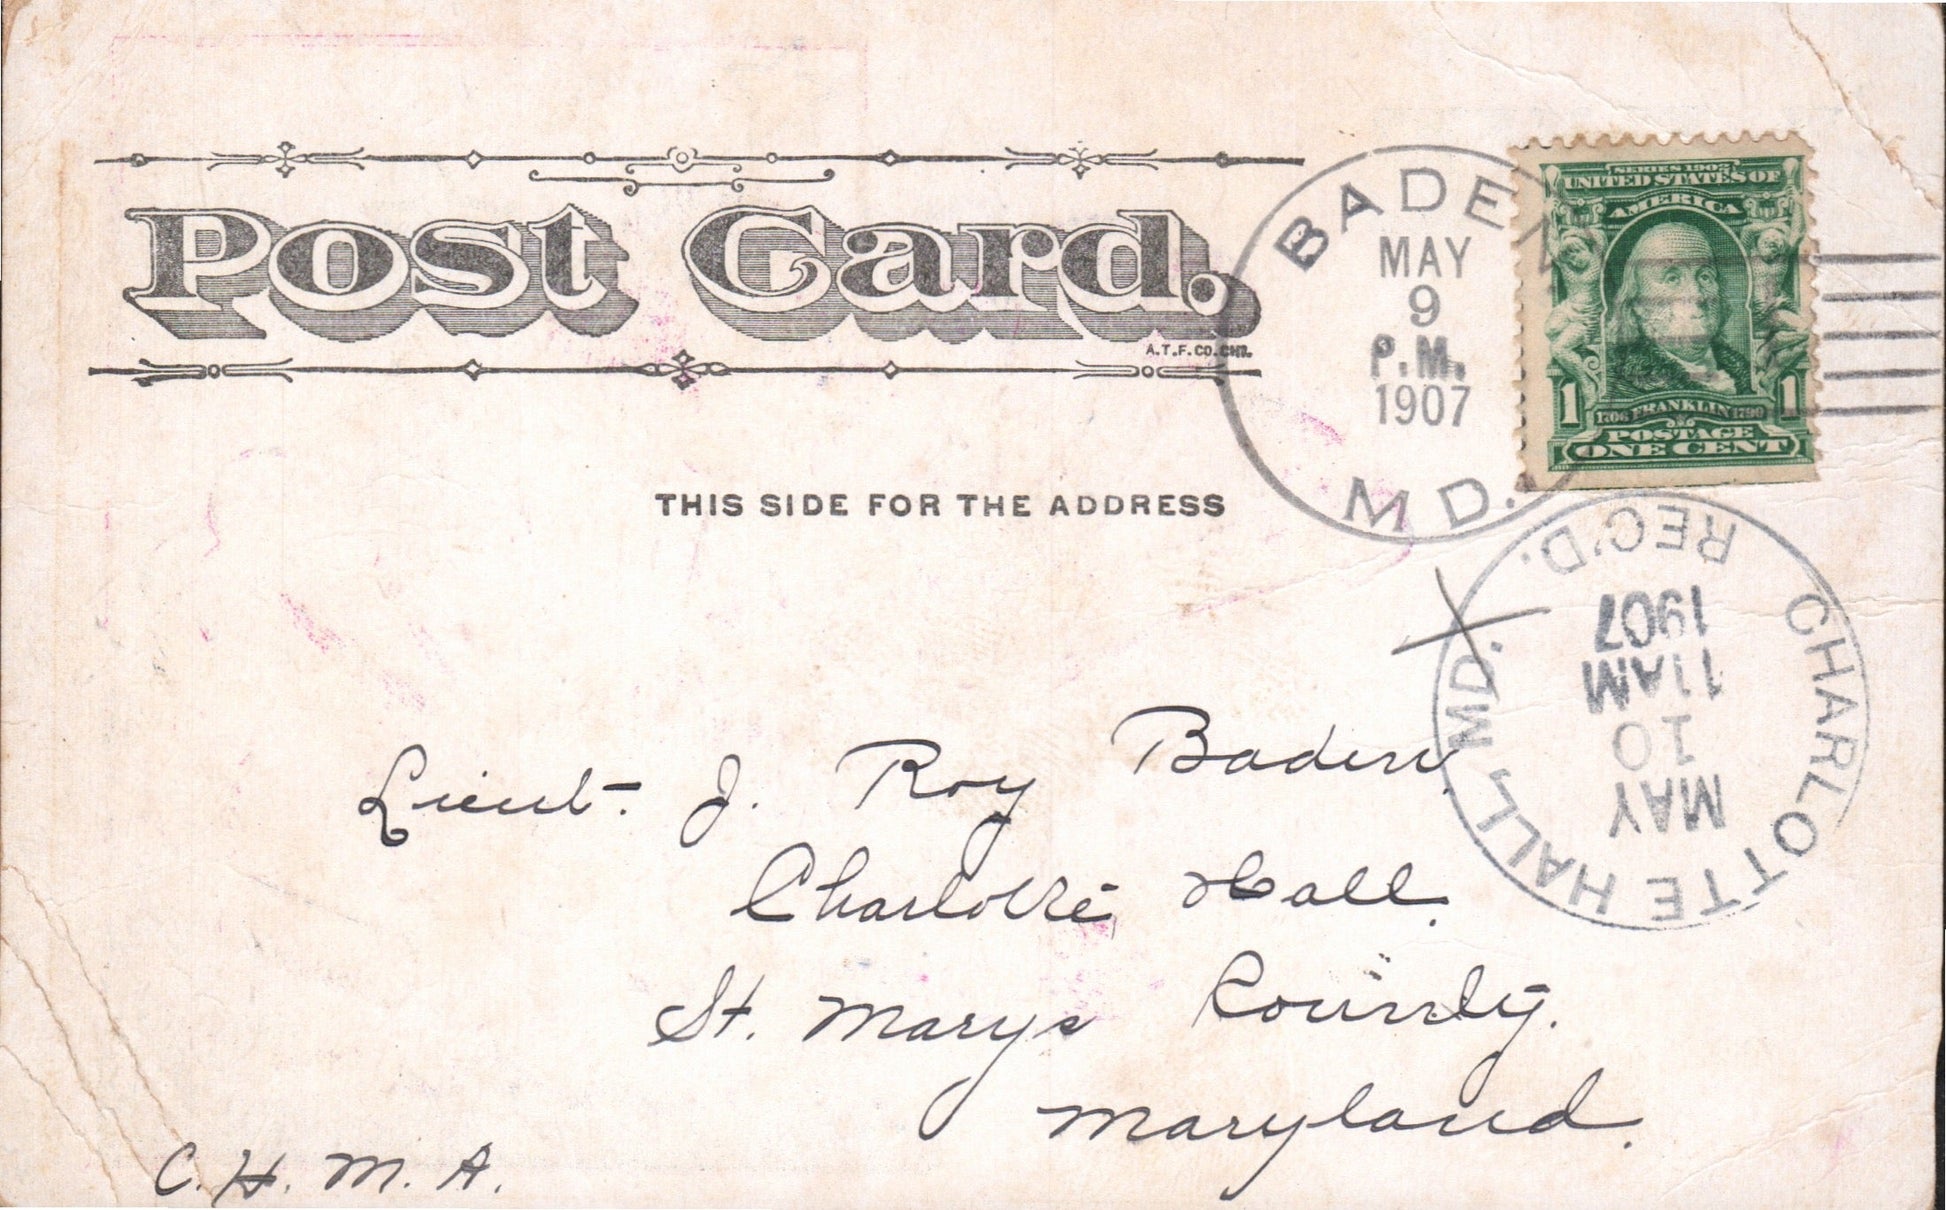 Post Card.
A.T.F.CO.CHI.
THIS SIDE FOR THE ADDRESS
BADEN
MAY
9
P.M.
1907
MD.
SERIES 1902
UNITED STATES OF
AMERICA
1 1706 FRANKLIN 1790 1
POSTAGE
ONE CENT
CHARLOTTE HALL, MD.
MAY
10
11AM
1907
REC'D.
Lieut. J. Roy Baden.
Charlotte Hall.
St. Marys County.
Maryland.
C. H. M. A.